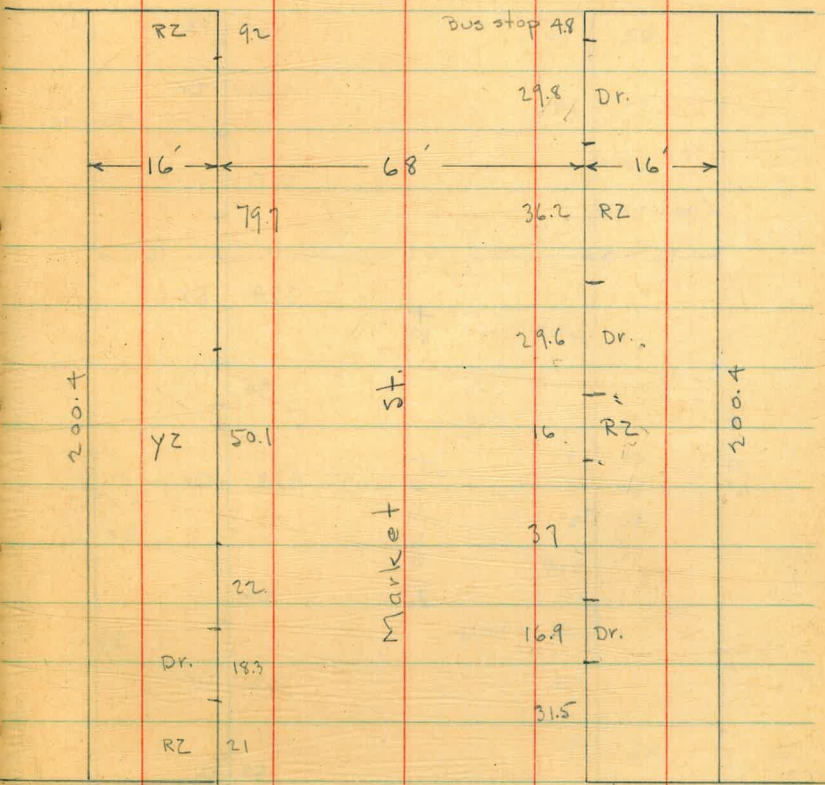 RZ 9.2 Bus stop 4.8
29.8 Dr.
16' 68' 16'
79.7 36.2 RZ
29.6 Dr.
200.4 Market St. 200.4
YZ 50.1 16 RZ
37
22
16.9 Dr.
Dr. 18.3
31.5
RZ 21